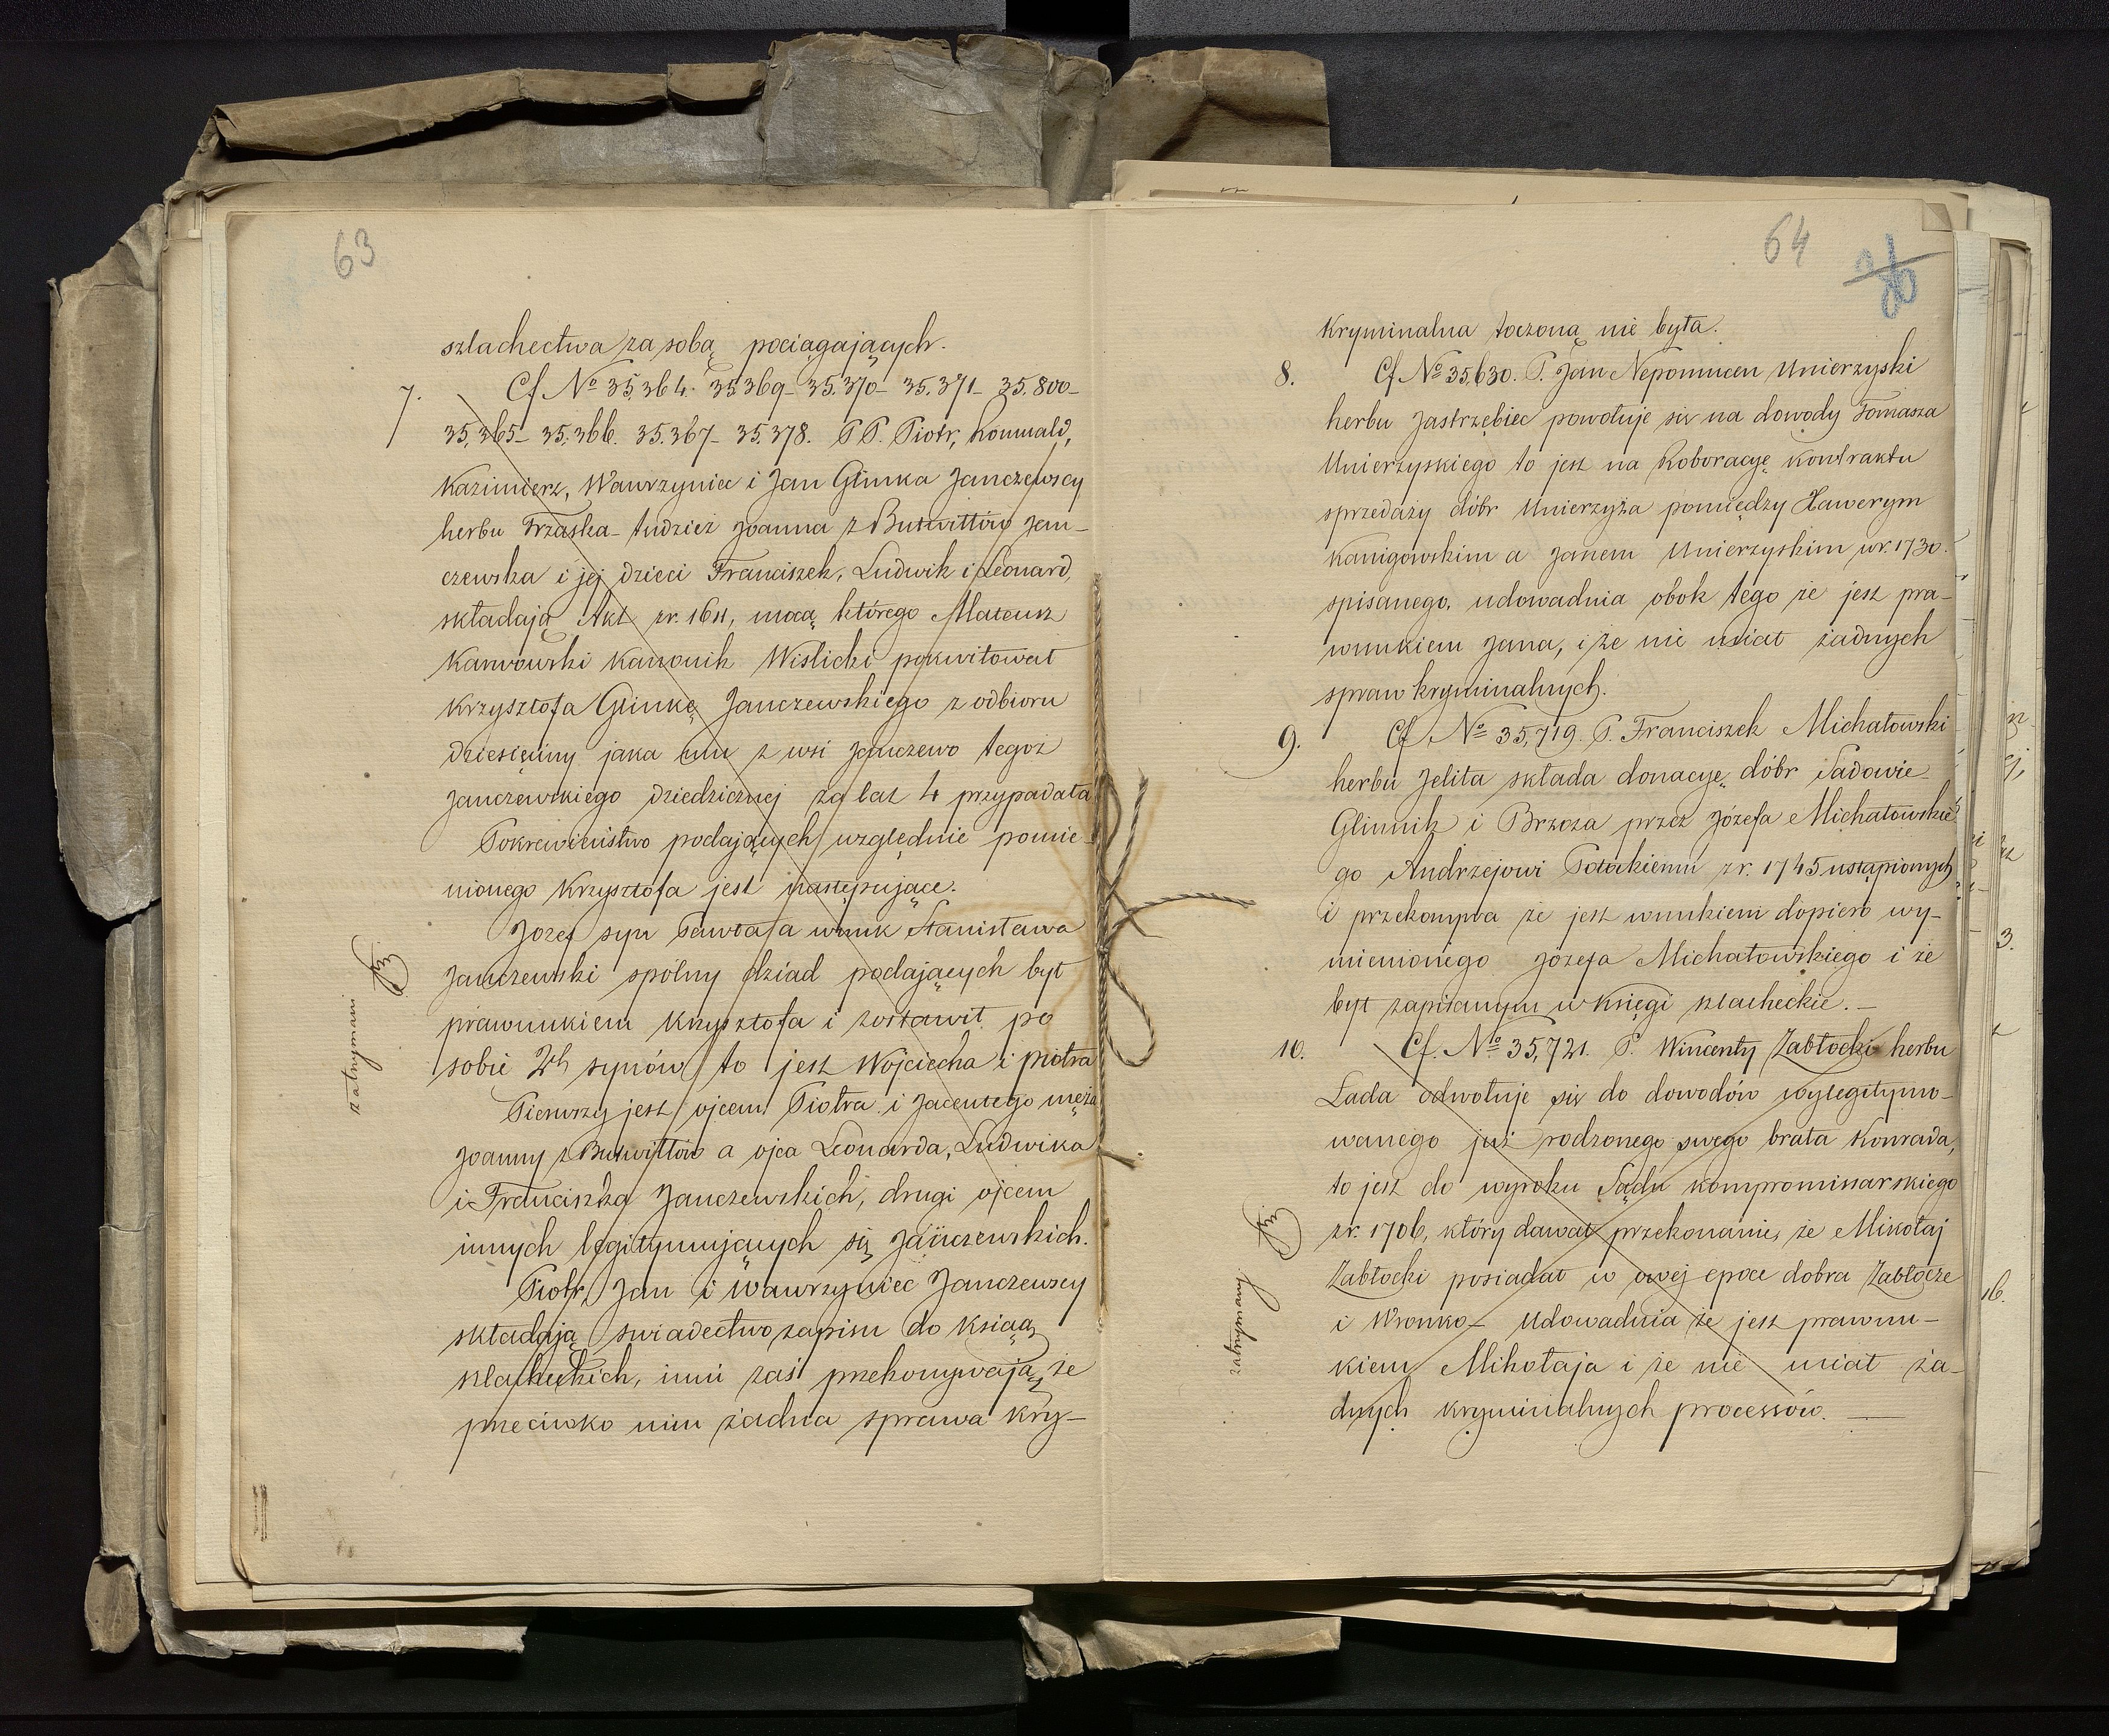 63
szlachectwa za sobą pociągających.
7. Cf № 35,364. 35.369_ 35.370_ 35.371_ 35.800_
35,365_ 35.366. 35.367_ 35.378. PP. Piotr, Romuald,
Kazimierz, Wawrzyniec i Jan Glinka Janczewscy
herbu Trzaska_ tudzież Joanna z Butwiłłów Jan_
czewska i jej dzieci Franciszek, Ludwik i Leonard,
składają Akt z r. 1611, mocą którego Mateusz
Karwowski Kanonik Wislicki pokwitował
Krzysztofa Glinkę Janczewskiego z odbioru
dziesięciny jaka mu z wsi Janczewo tegoż
Janczewskiego dziedzicznej za lat 4 przypadała
Pokrewieństwo podających względnie pomie_
nionego Krzysztofa jest następujące.
Józef syn Pawła a wnuk Stanisława
Janczewski spólny dziad podających był
prawnukiem Krzysztofa i zostawił po
sobie 2ch synów to jest Wojciecha i Piotra
Pierwszy jest ojcem Piotra i Jacentego męża
Joanny z Butwiłłów a ojca Leonarda, Ludwika
i Franciszka Janczewskich, drugi ojcem
innych legitymujących się Janczewskich.
Piotr, Jan i Wawrzyniec Janczewscy
składają swiadectwo zapisu do ksiąg
szlacheckich, inni zaś przekonywają, że
przeciwko nim żadna sprawa kry_
zatrzymani
64
Kryminalna toczoną nie była.
8. Cf № 35,630. P. Jan Nepomucen Unierzyski
herbu Jastrzębiec powołuje się na dowody Tomasza
Unierzyskiego to jest na Roboracyę kontraktu
sprzedaży dóbr Unierzyża pomiędzy Xawerym
Kanigowskim a Janem Unierzyskim w r. 1730.
spisanego, udowadnia obok tego że jest pra_
wnukiem Jana, i że nie miał żadnych
spraw kryminalnych.
9. Cf № 35,719. P. Franciszek Michałowski
herbu Jelita składa donacyę dóbr Sadowie_
Glinnik i Brzoza przez Józefa Michałowskie_
go Andrzejowi Potockiemu z r. 1745 ustąpionych
i przekonywa że jest wnukiem dopiero wy_
mienionego Józefa Michałowskiego i że
był zapisanym w księgi szlacheckie. _
10. Cf. № 35,721. P. Wincenty Zabłocki herbu
Lada odwołuje się do dowodów wylegitymo_
wanego już rodzonego swego brata Konrada,
to jest do wyroku Sądu kompromissarskiego
z r. 1706, który dawał przekonanie, że Mikołaj
Zabłocki posiadał w owej epoce dobra Zabłocze
i Wronko_ Udowadnia że jest prawnu_
kiem Mikołaja i że nie miał ża_
dnych kryminalnych processów. _
zatrzymany